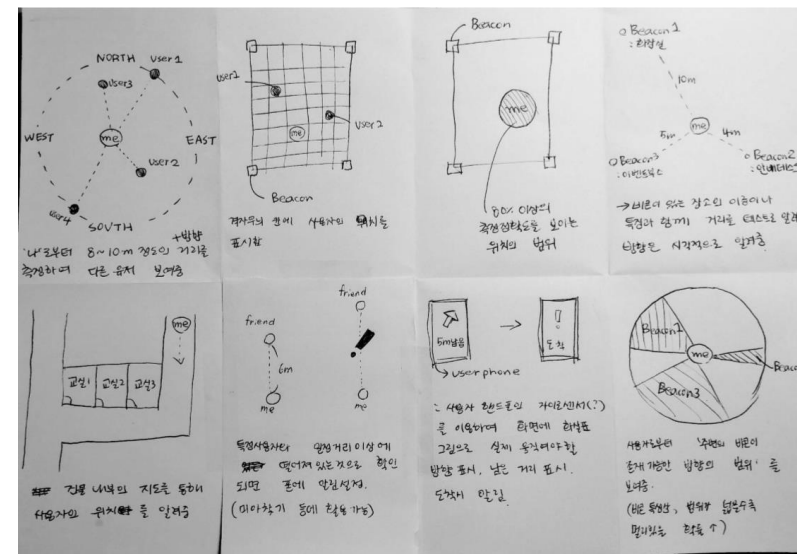 NORTH
user1
user3
WEST
me
EAST
user2
user4
SOUTH
+방향
'나'로부터 8~10m 정도의 거리를
측정하여 다른 유저 보여줌
Beacon
user1
me
user2
Beacon
격자무늬 판에 사용자의 위치를
표시함
Beacon
me
80% 이상의
측정정확도를 보이는
위치의 범위
Beacon 1
: 화장실
10m
me
5m
4m
Beacon3
: 이벤트부스
Beacon2
: 안내데스크
→ 비콘이 있는 장소의 이름이나
특징과 함께 거리를 텍스트로 알려
방향은 시각적으로 알려줌
me
교실1
교실2
교실3
건물 내부의 지도를 통해
사용자의 위치를 알려줌
friend
6m
me
friend
!
me
특정사용자와 일정거리 이상에
떨어져 있는것으로 확인
되면 폰에 알림설정.
(미아찾기 등에 활용 가능)
5m남음
→
!
도착
user phone
: 사용자 핸드폰의 자이로센서(?)
를 이용하여 화면에 화살표
그림으로 실제 움직여야 할
방향 표시, 남은 거리 표시.
도착시 알림.
Beacon1
me
Beaco
Beacon3
사용자로부터 '주변의 비콘이
존재 가능한 방향의 범위'를
보여줌.
(비콘 특성상, 범위가 넓을수록
멀리있을 확률↑)